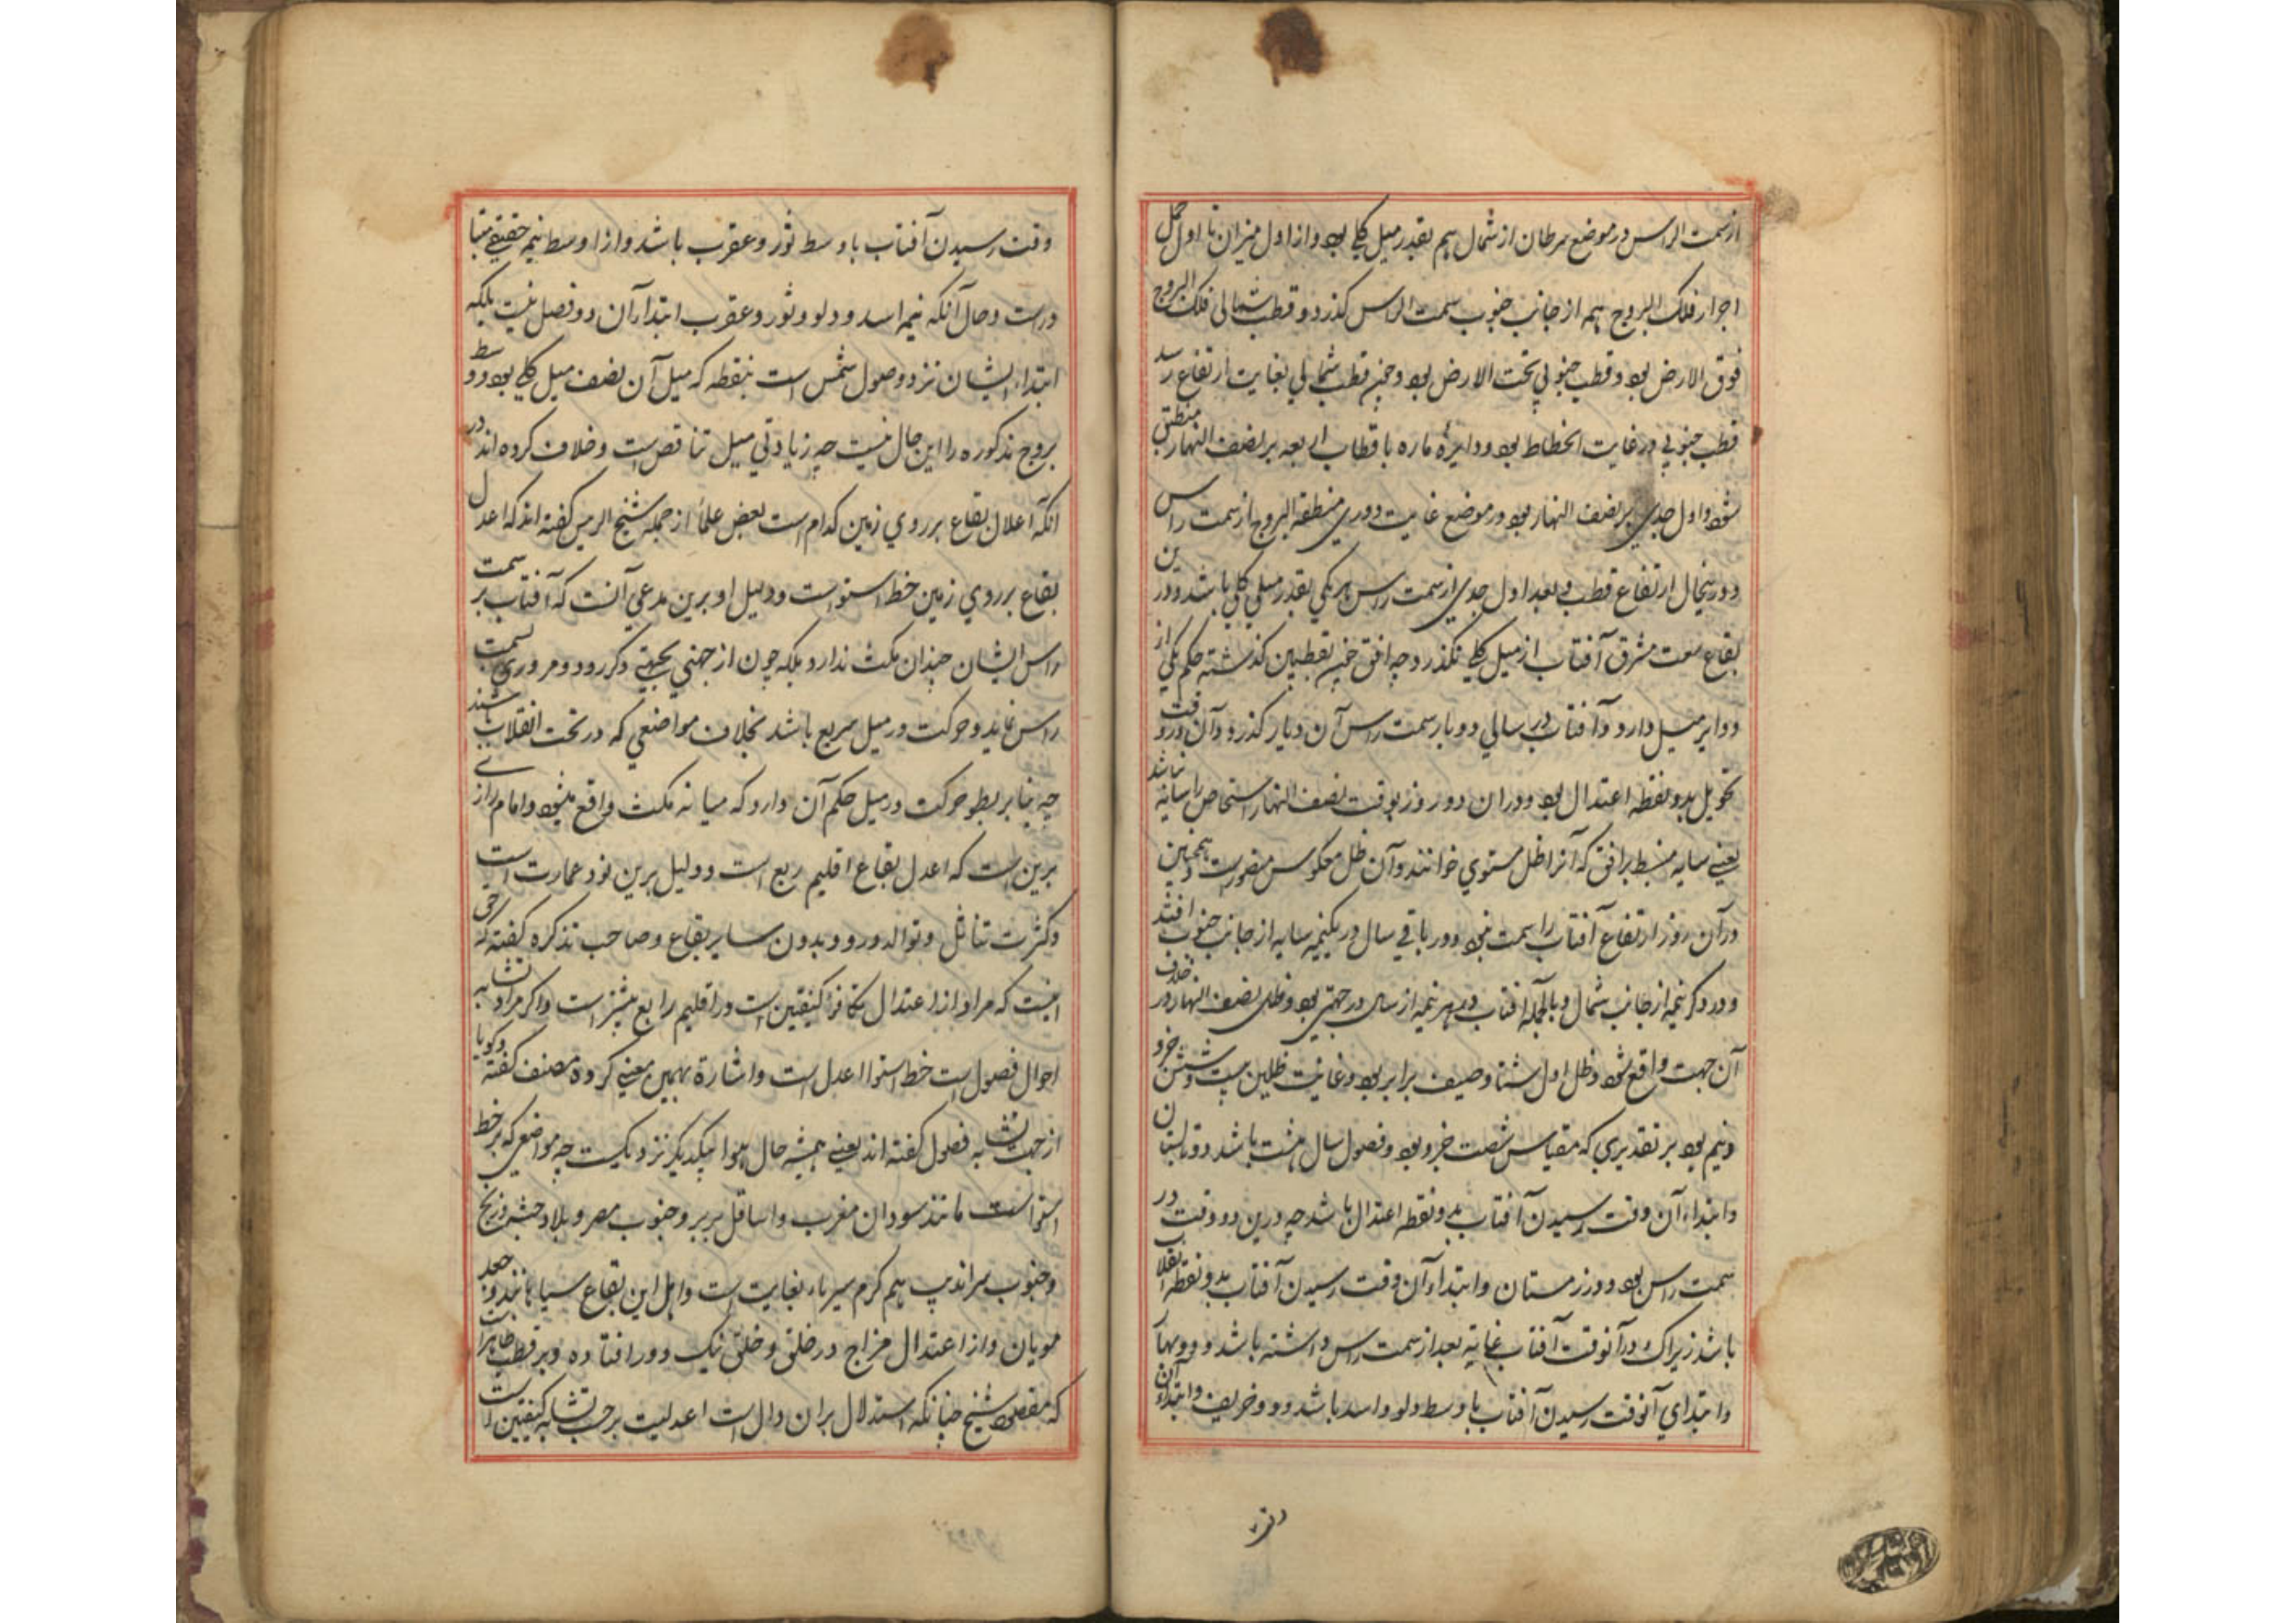 از سمت الراس در موضع سرطان از شمال هم بقدر میل کلی بود و از اول میزان تا اول حمل
اجزاء فلک البروج همه از جانب جنوب سمت الراس گذرد و قطب شمالی فلک البروج
فوق الارض بود و قطب جنوبی تحت الارض بود و چون قطب شمالی بغایت ارتفاع رسد
قطب جنوبی در غایت انحطاط بود و دایرهٔ ماره باقطاب اربعه بر نصف النهار منطبق
شود و اول جدی بر نصف النهار بود در موضع غایت دوری منطقة البروج از سمت راس
و درینحال ارتفاع قطب و بعد اول جدی از سمت راس هر یکی بقدر میل کلی باشد و درین
بقاع سعت مشرق آفتاب از میل کلی نگذرد چه افق بقطبین گذشته حکم یکی از
دوایر میل دارد و آفتاب در سالی دو بار سمت راس آن دیار گذرد و آن در وقت
تحویل بدو نقطه اعتدال بود و در آن دو روز بوقت نصف النهار اشخاص را سایه نباشد
یعنی سایه منبسط بر افق که آنرا ظل مستوی خوانند و آن ظل معکوس متصورست و همچنین
در آن روز ارتفاع آفتاب را سمت نبود و در باقی سال در یکنیمه سایه از جانب جنوب افتد
و در دگر نیمه از جانب شمال و بالجمله آفتاب در هر نیمه از سال در جهتی بود و ظل نصف النهار در خلاف
آن جهت واقع شود و ظل اول شتا و صیف برابر بود و غایت ظلین بیست و شش جزو
و نیم بود بر تقدیری که مقیاس شصت جزو بود و فصول سال هشت باشد دو تابستان
و ابتداء آن وقت رسیدن آفتاب بدو نقطه اعتدال باشد چه درین دو وقت در
سمت راس بود و دو زمستان و ابتداء آن وقت رسیدن آفتاب بدو نقطه انقلاب
باشد زیراک در آنوقت آفتاب غایة بعد از سمت راس داشته باشد و دو بهار
و ابتدای آنوقت رسیدن آفتاب باوسط دلو و اسد باشد و دو خریف و ابتداء آن
وقت
وقت رسیدن آفتاب باوسط ثور و عقرب باشد و از اوسط نیمه حقیقی متبا
درست و حال آنکه نیمه اسد و دلو و ثور و عقرب ابتدا آن دو فصل نیست بلکه
ابتداء ایشان نزد وصول شمس است بنقطه که میل آن نصف میل کلی بود و وسط
بروج مذکوره را این حال نیست چه زیادتی میل تناقص است و خلاف کرده اند در
انکه اعدل بقاع بر روی زمین کدام است بعض علما از جمله شیخ الرییس گفته اند که اعدل
بقاع بر روی زمین خط استواست و دلیل او برین مدعی آنست که آفتاب بر سمت
راس ایشان چندان مکث ندارد بلکه چون از جهتی بجهتی دگر رود مروری بسمت
راس نماید و حرکت در میل سریع باشد بخلاف مواضعی که در تحت انقلاب شند
چه بنا بر بطو حرکت در میل حکم آن دارد که میانه مکث واقع میشود و امام رازی
برین است که اعدل بقاع اقلیم ربع است و دلیل برین نود عمارت است
و کثرت تناسل و توالد درو بدون سایر بقاع و صاحب تذکره گفته که حق
اینست که مراد از اعتدال تکافؤ کیفیتین است در اقلیم رابع بیشتر است و اگر مراد تشابه
احوال فصول است خط استوا اعدل است و اشارة بهمین معنی کرده مصنف گفته و گویا
از جهت تشابه فصول گفته اند یعنی همیشه حال هوا بیکدیگر نزدیکست چه مواضعی که بر خط
استواست مانند سودان مغرب و اسافل بربر و جنوب مصر و بلاد حبش و زنج
و جنوب سراندیپ هم گرم سیر بغایت است و اهل این بقاع سیاهانند و جعد
مویان و از اعتدال مزاج در خلق و خلق نیک دور افتاده و بر فطن ظاهر است
که مقصود شیخ چنانکه استدلال بر آن دال است اعدلیت بر حسب تشابه کیفیتین است